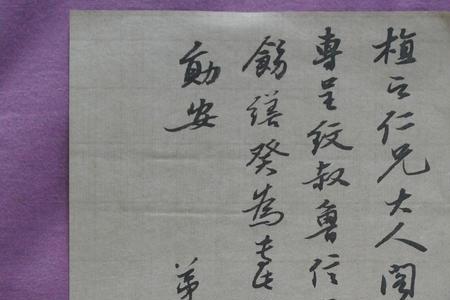 植之仁兄大人閣
專呈紋叔魯信
飭繕癸為
勛安
弟